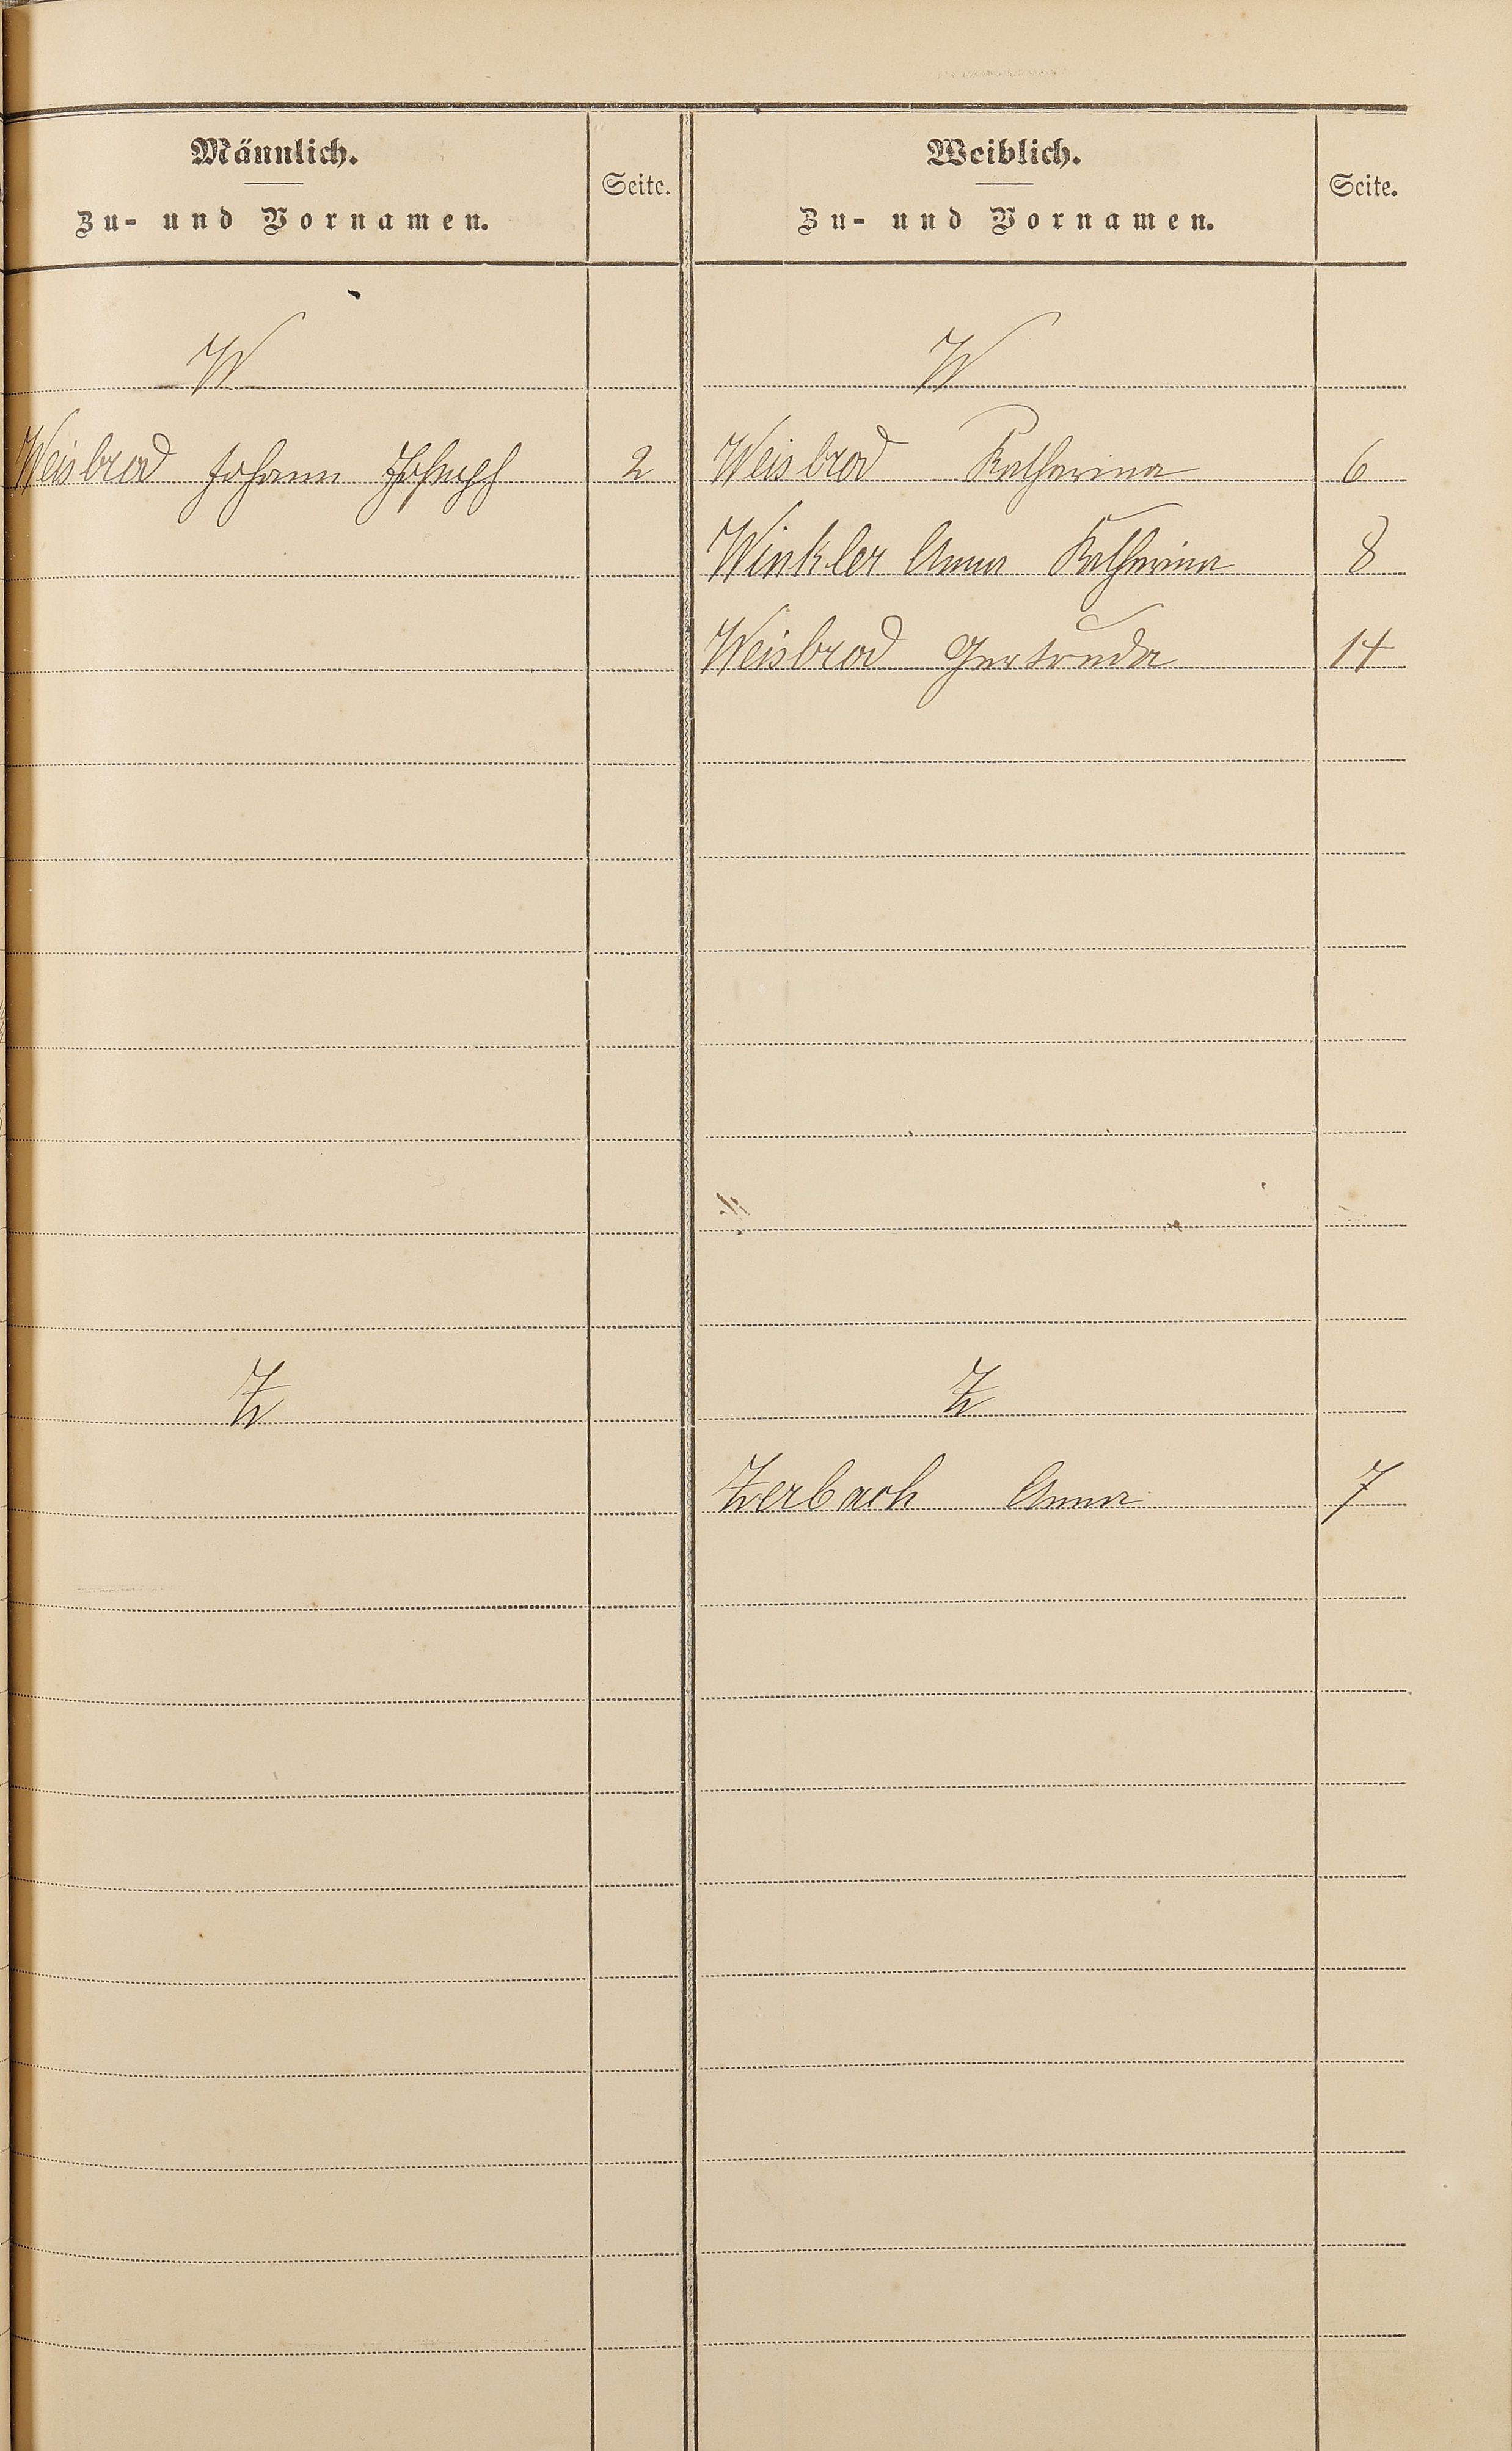 Männlich.
Zu- und Vornamen.
Seite.
Weiblich.
Zu- und Vornamen.
Seite.
W
W
Weisbrod Johann Joseph 2
Weisbrod Katharina 6
Winkler Anna Katharina 8
Weisbrod Gertruda 14
Z
Z
Zerbach Anna 7